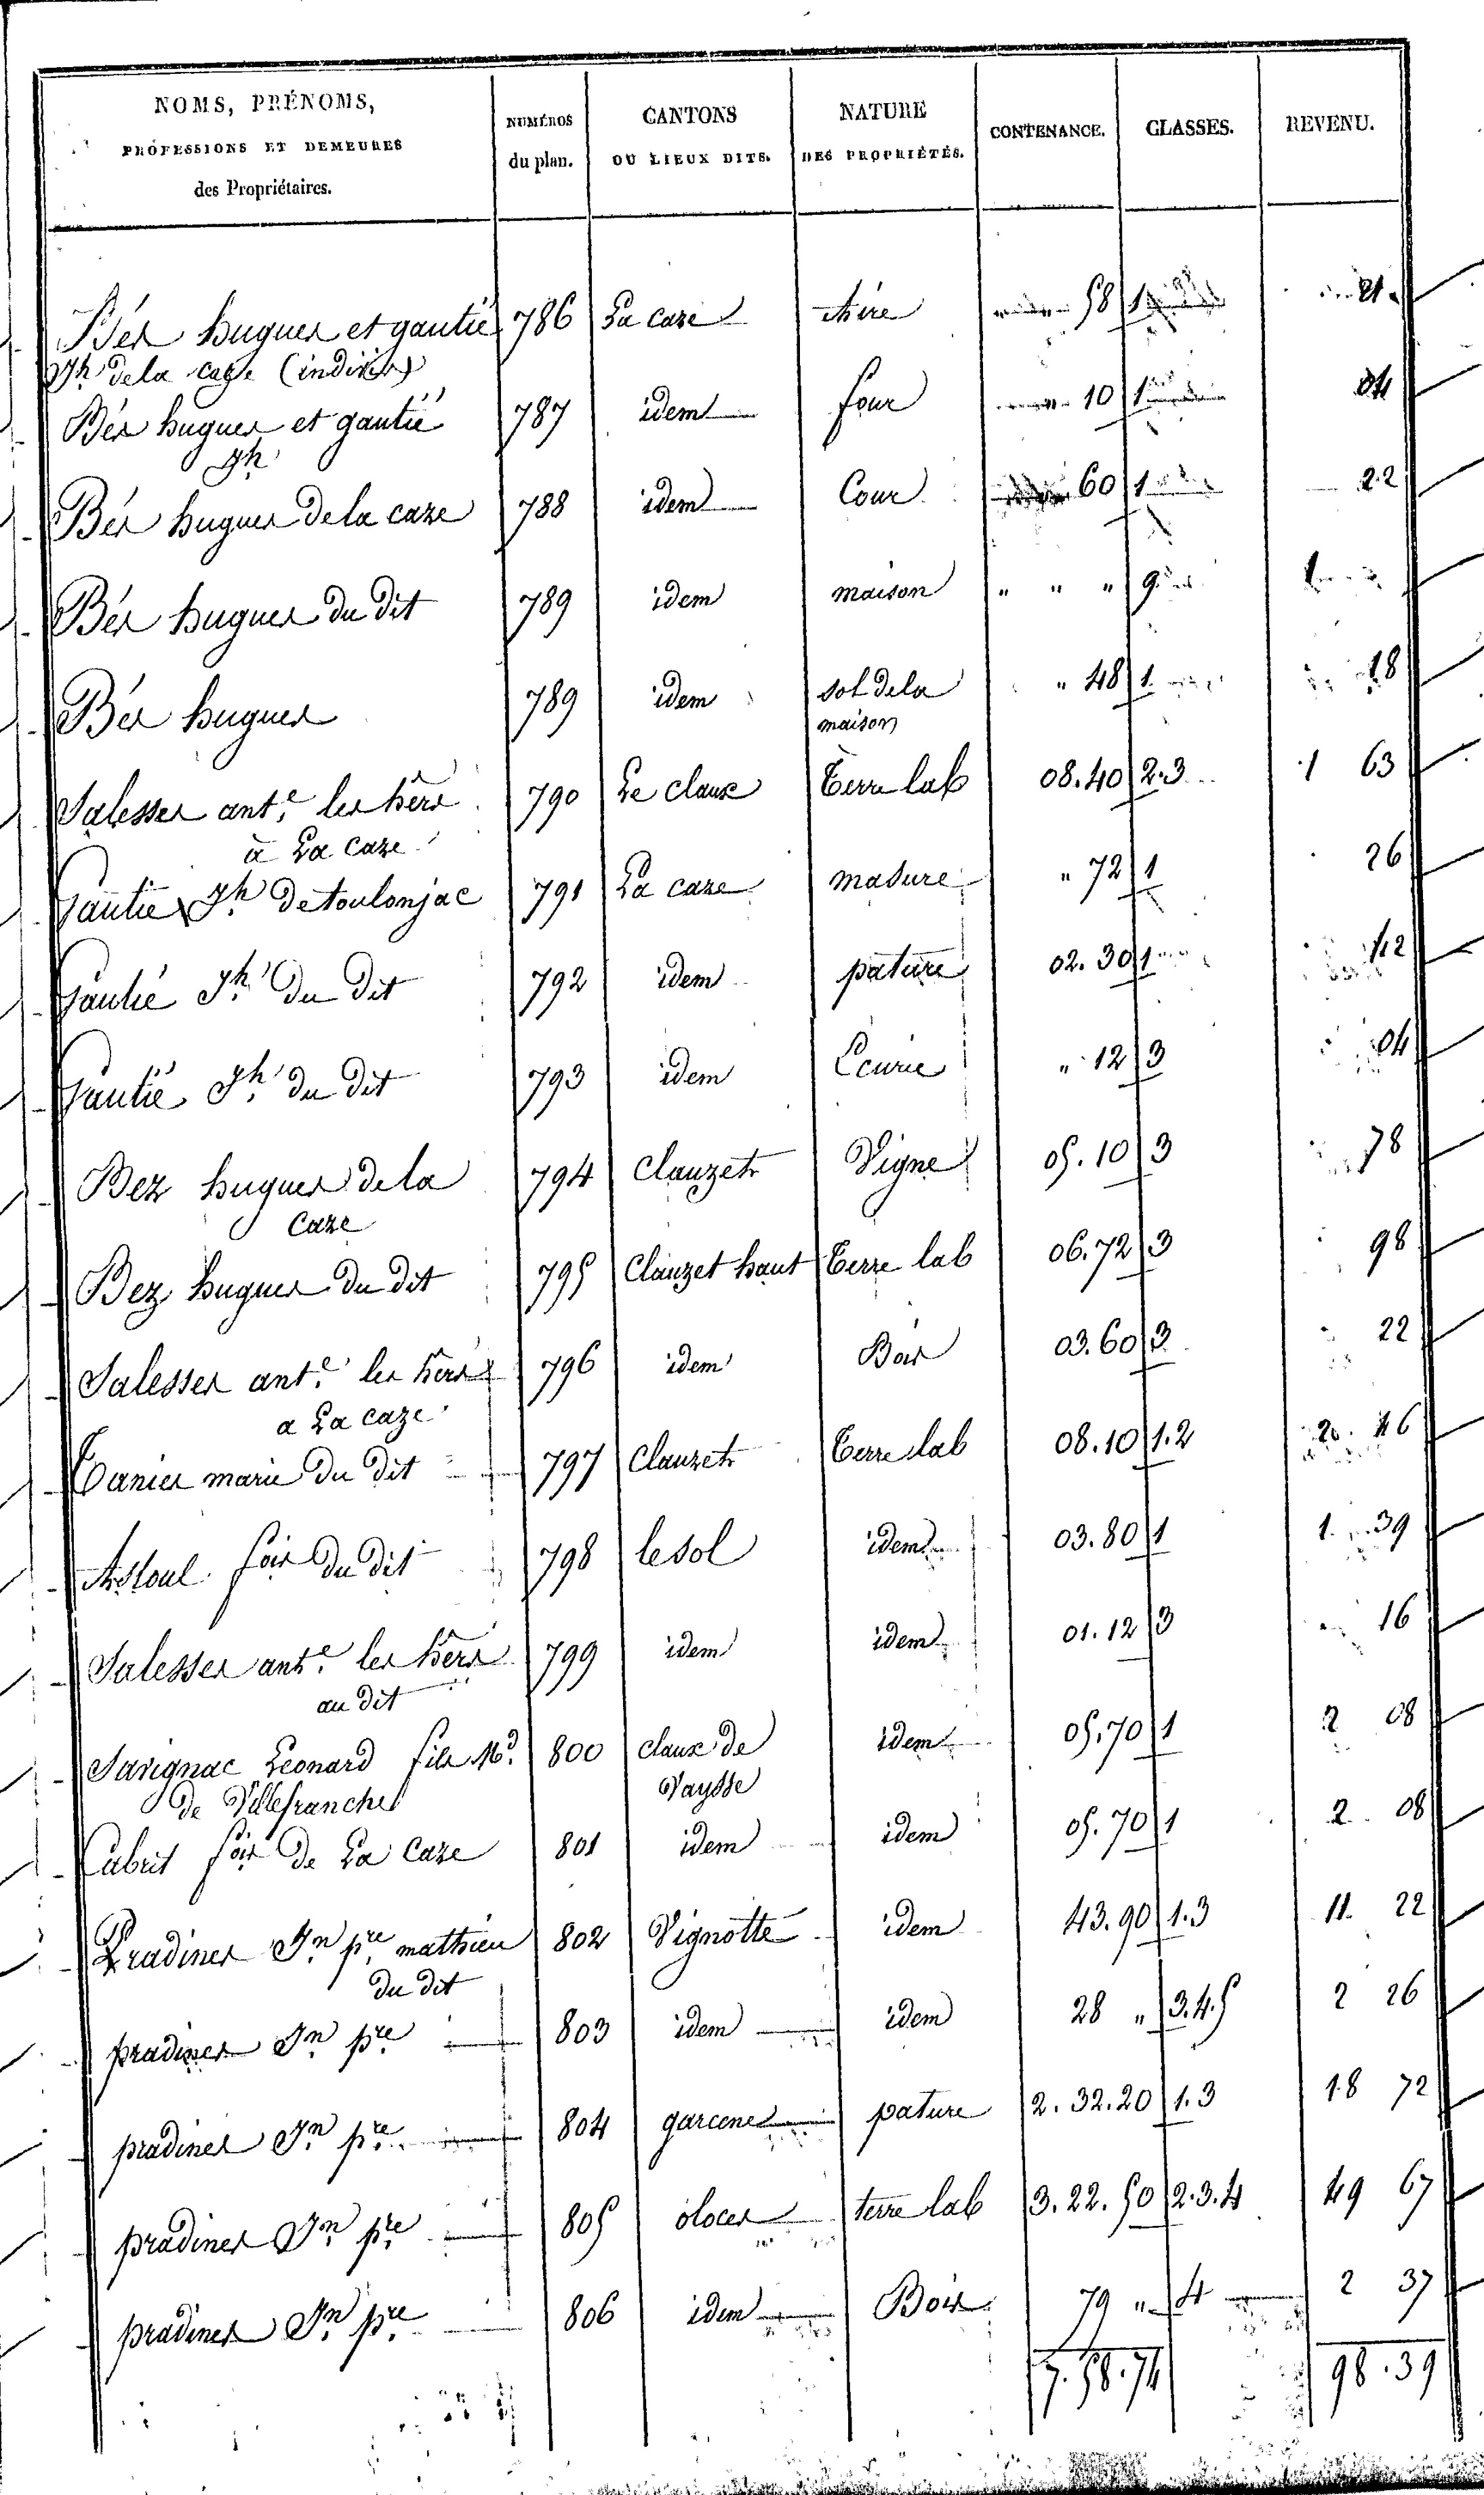 NOMS, PRÉNOMS, PROFESSIONS ET DEMEURES des Propriétaires. | NUMÉROS du plan. | CANTONS OU LIEUX DITS. | NATURE DES PROPRIÉTÉS. | CONTENANCE. | CLASSES. | REVENU.
Bés hugues et gautié 786 La caze aire 58 1 21
Jh de la caze (indivis)
Bés hugues et gautié 787 idem four 10 1 04
Jh
Bés hugues de la caze 788 idem Cour 60 1 22
Bés hugues du dit 789 idem maison " " " 9 1
Bés hugues 789 idem sol de la " 48 1 18
maison
Salesses ant.e les hêrs 790 Le claux Terre lab 08.40 2.3 1 63
à La Caze
Gautié Jh de toulonjac 791 La caze masure " 72 1 26
Gautié Jh du dit 792 idem pature 02.30 1 12
Gautié Jh du dit 793 idem Ecurie " 12 3 04
Bez hugues de la 794 Clauzet Vigne 05.10 3 78
Caze
Bez hugues du dit 795 Clauzet haut Terre lab 06.72 3 98
Salesses ant.e les hêrs 796 idem Bois 03.60 3 22
a La caze
Tanies marie du dit 797 Clauzet Terre lab 08.10 1.2 2 46
Astoul fois du dit 798 le sol idem 03.80 1 1 39
Salesses ant.e les hêrs 799 idem idem 01.12 3 16
au dit
Savignac Léonard fils Md. 800 claux de idem 05.70 1 2 08
de Villefranche Vaysse
Cabrit fois de La Caze 801 idem idem 05.70 1 2 08
Pradines Jn pre mathieu 802 Vignotte idem 43.90 1.3 11 22
du dit
pradines Jn pre 803 idem idem 28 " 3.4.5 2 26
pradines Jn pre 804 garenes pature 2.32.20 1.3 18 72
pradines Jn pre 805 oloces terre lab 3.22.50 2.3.4 49 67
pradines Jn pre 806 idem Bois 79 " 4 2 37
7.58.74 98.39